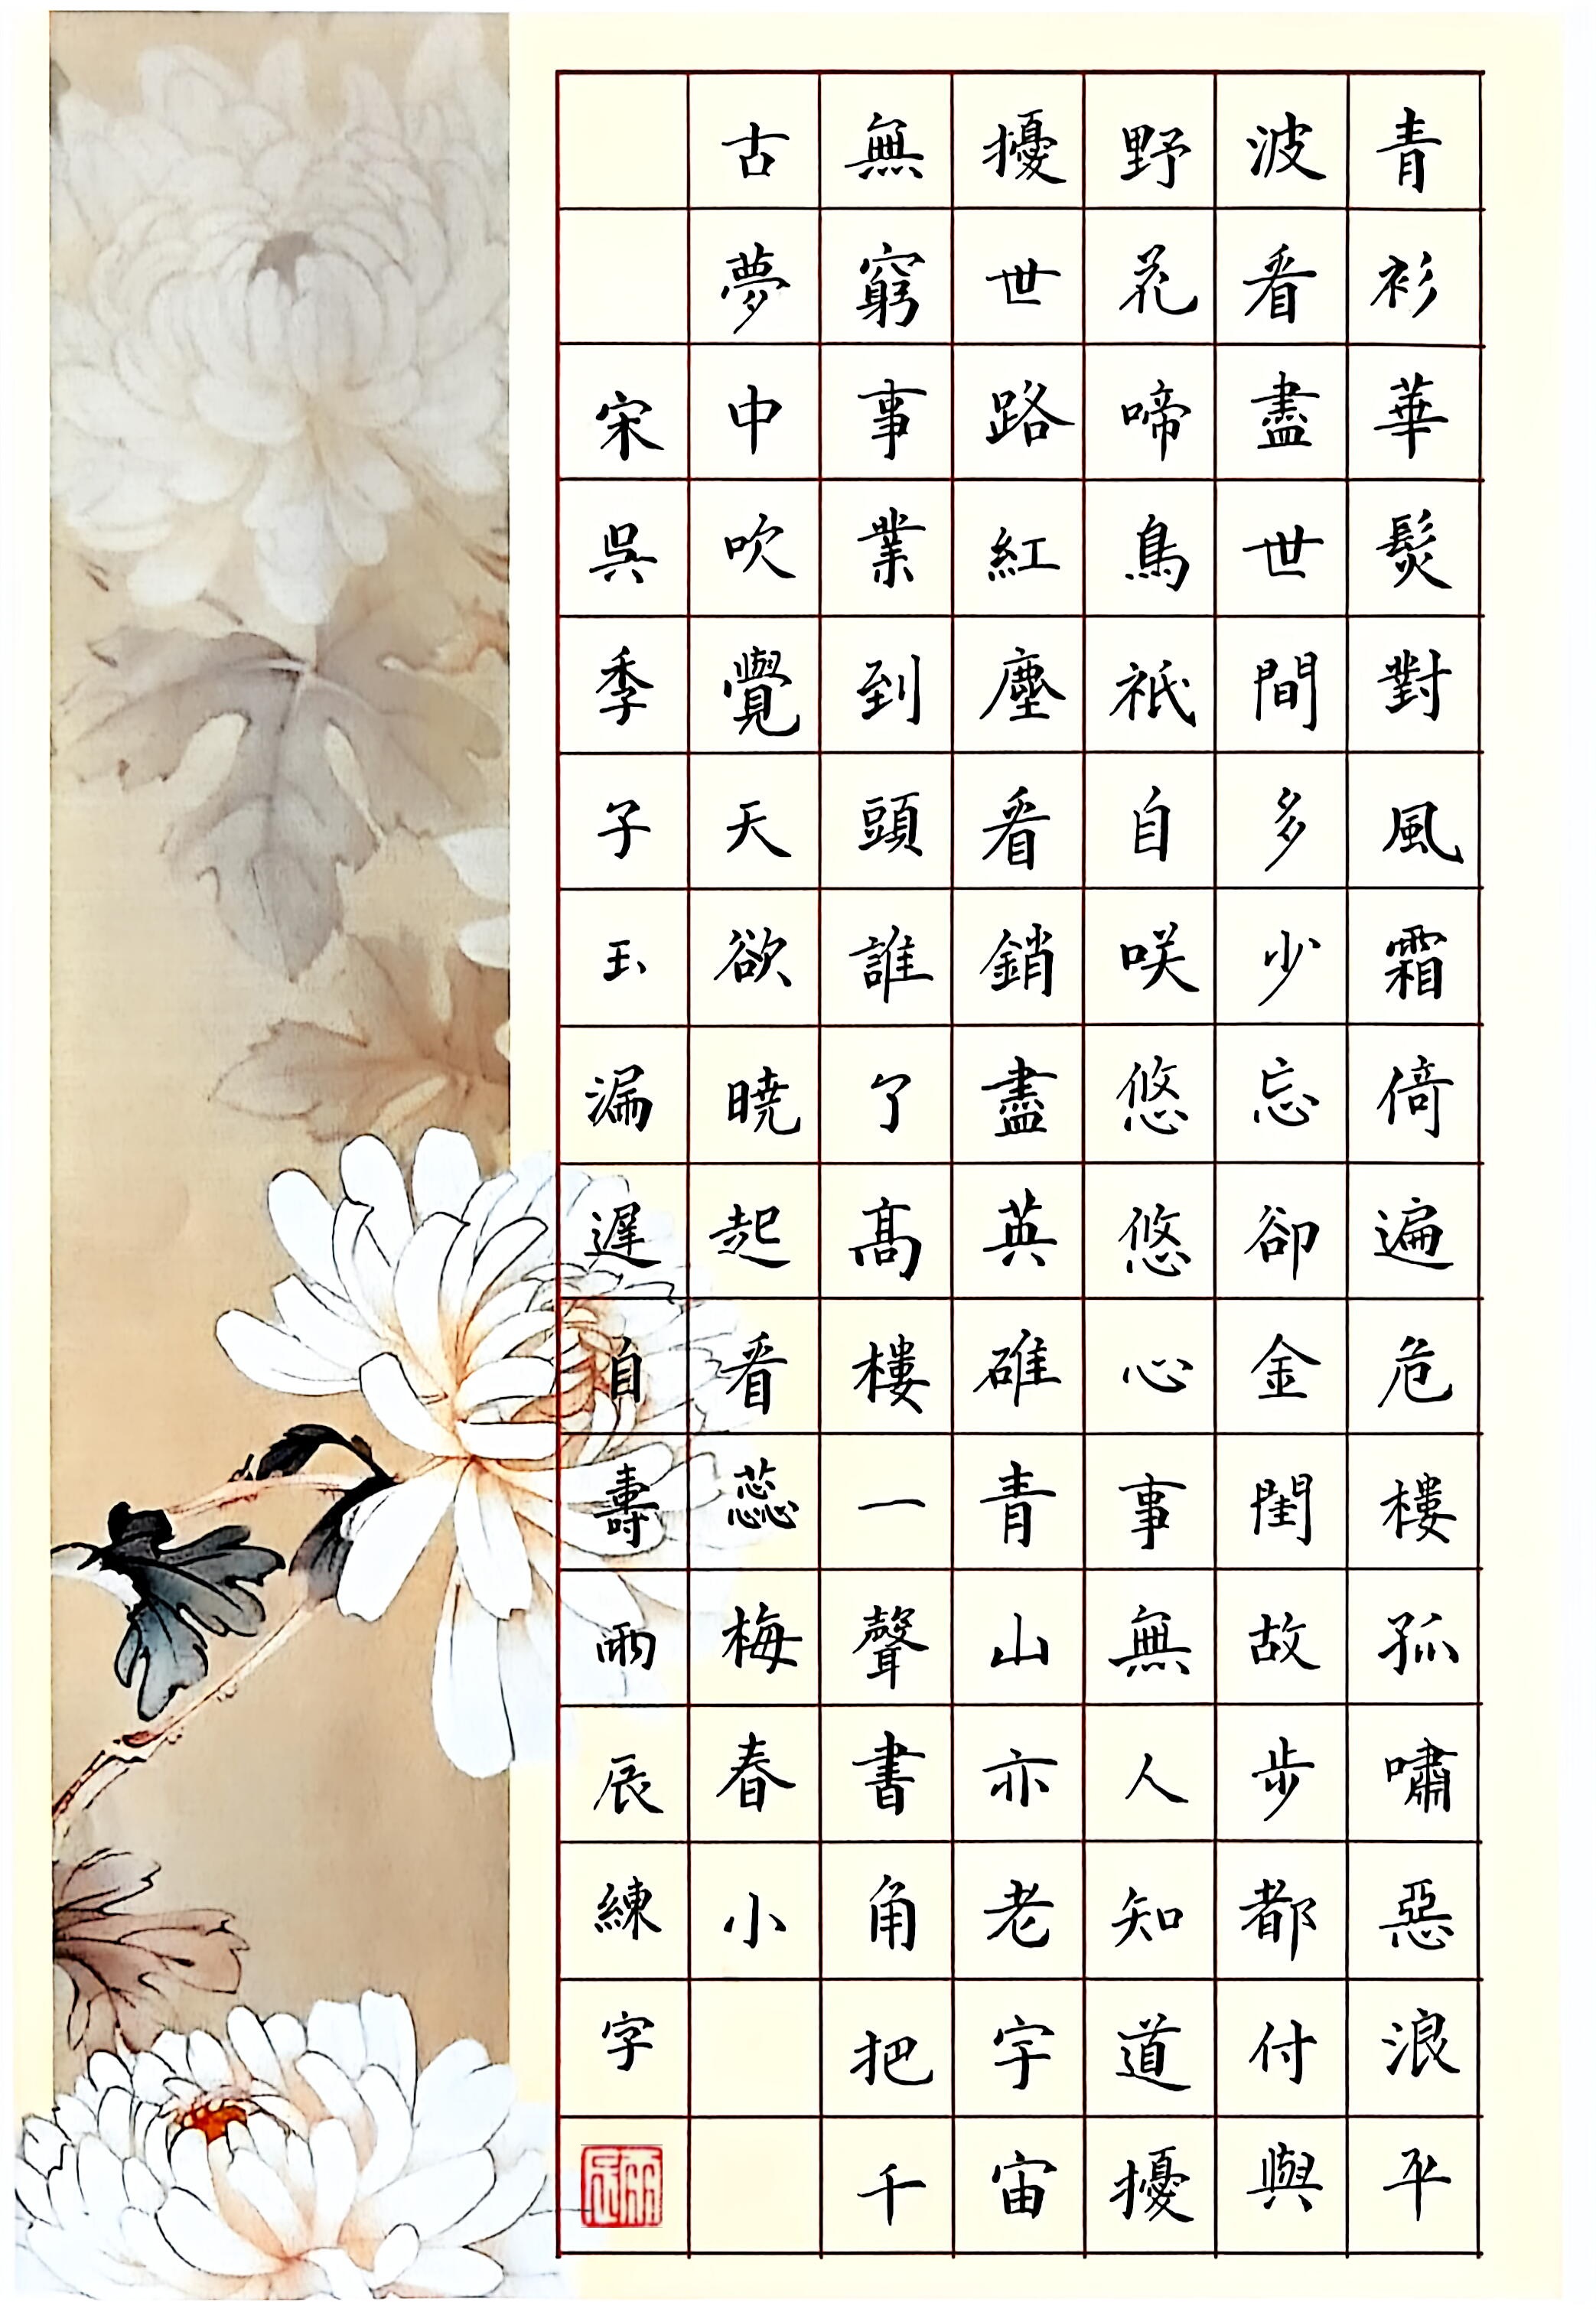 青衫華髮對風霜倚遍危樓孤嘯惡浪平
波看盡世間多少忘卻金閨故步都付與
野花啼鳥祇自咲悠悠心事無人知道擾
擾世路紅塵看銷盡英雄青山亦老宇宙
無窮事業到頭誰了高樓一聲書角把千
古夢中吹覺天欲曉起看蕊梅春小
宋吳季子玉漏遲自壽雨辰練字
雨辰